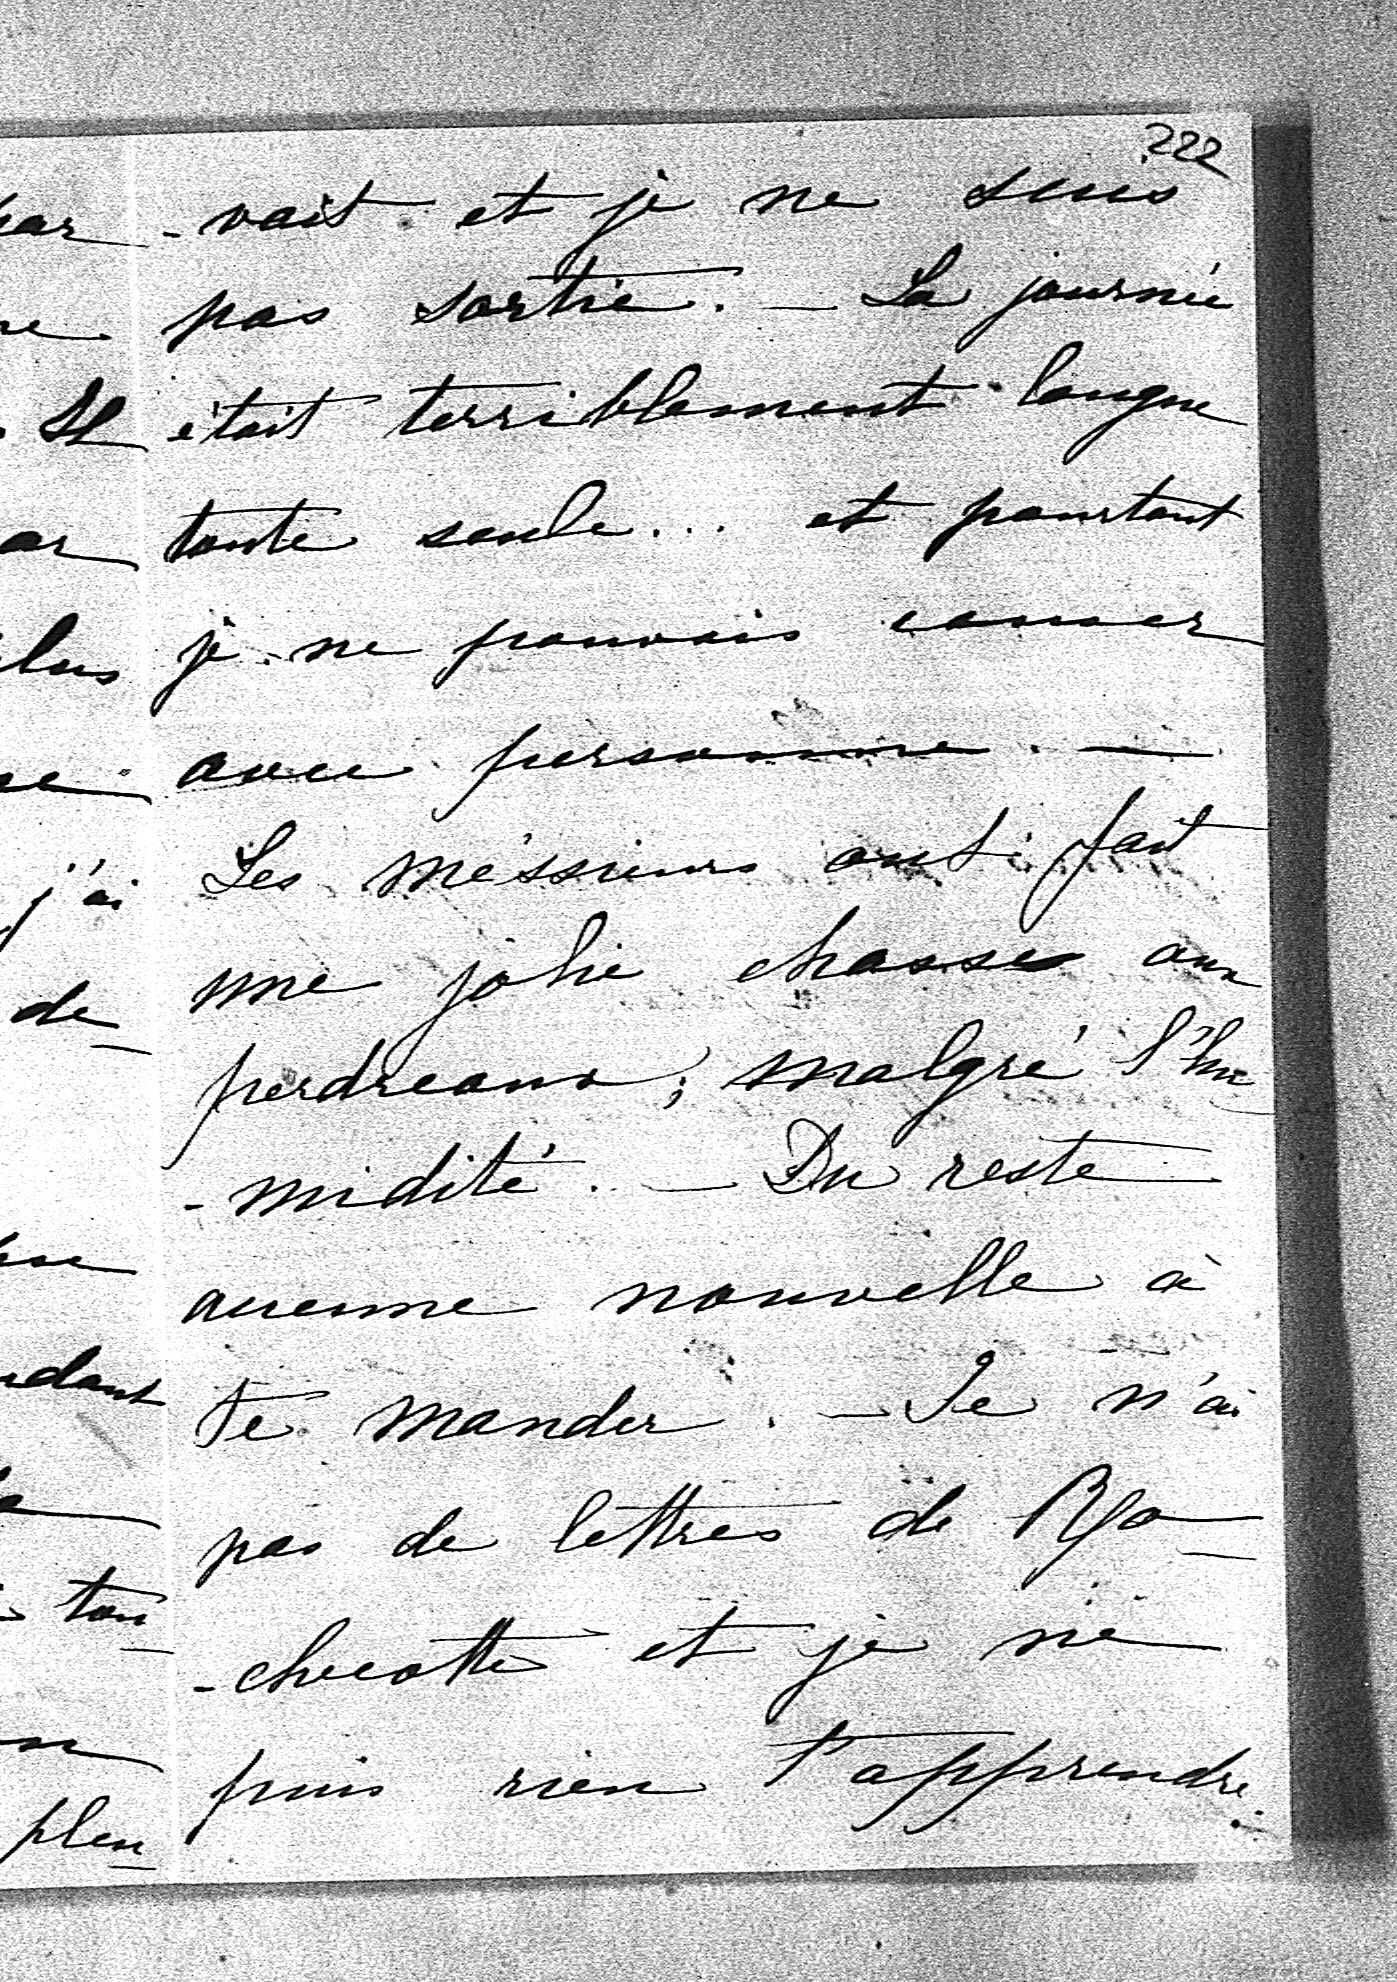 222
-vait et je ne suis
pas sortie. — La journée
était terriblement longue
toute seule... et pourtant
je ne pouvais causer
avec personne. —
Les méssieurs ont fait
une jolie chasse aux
perdreaux; malgré l'hu
-midité. — Du reste
aucune nouvelle à
te mander. — Je n'ai
pas de lettres de Ro-
-checotte et je ne
puis rien t'apprendre.
ne
Il
plus
j'ai
de-
tou-
pleu-